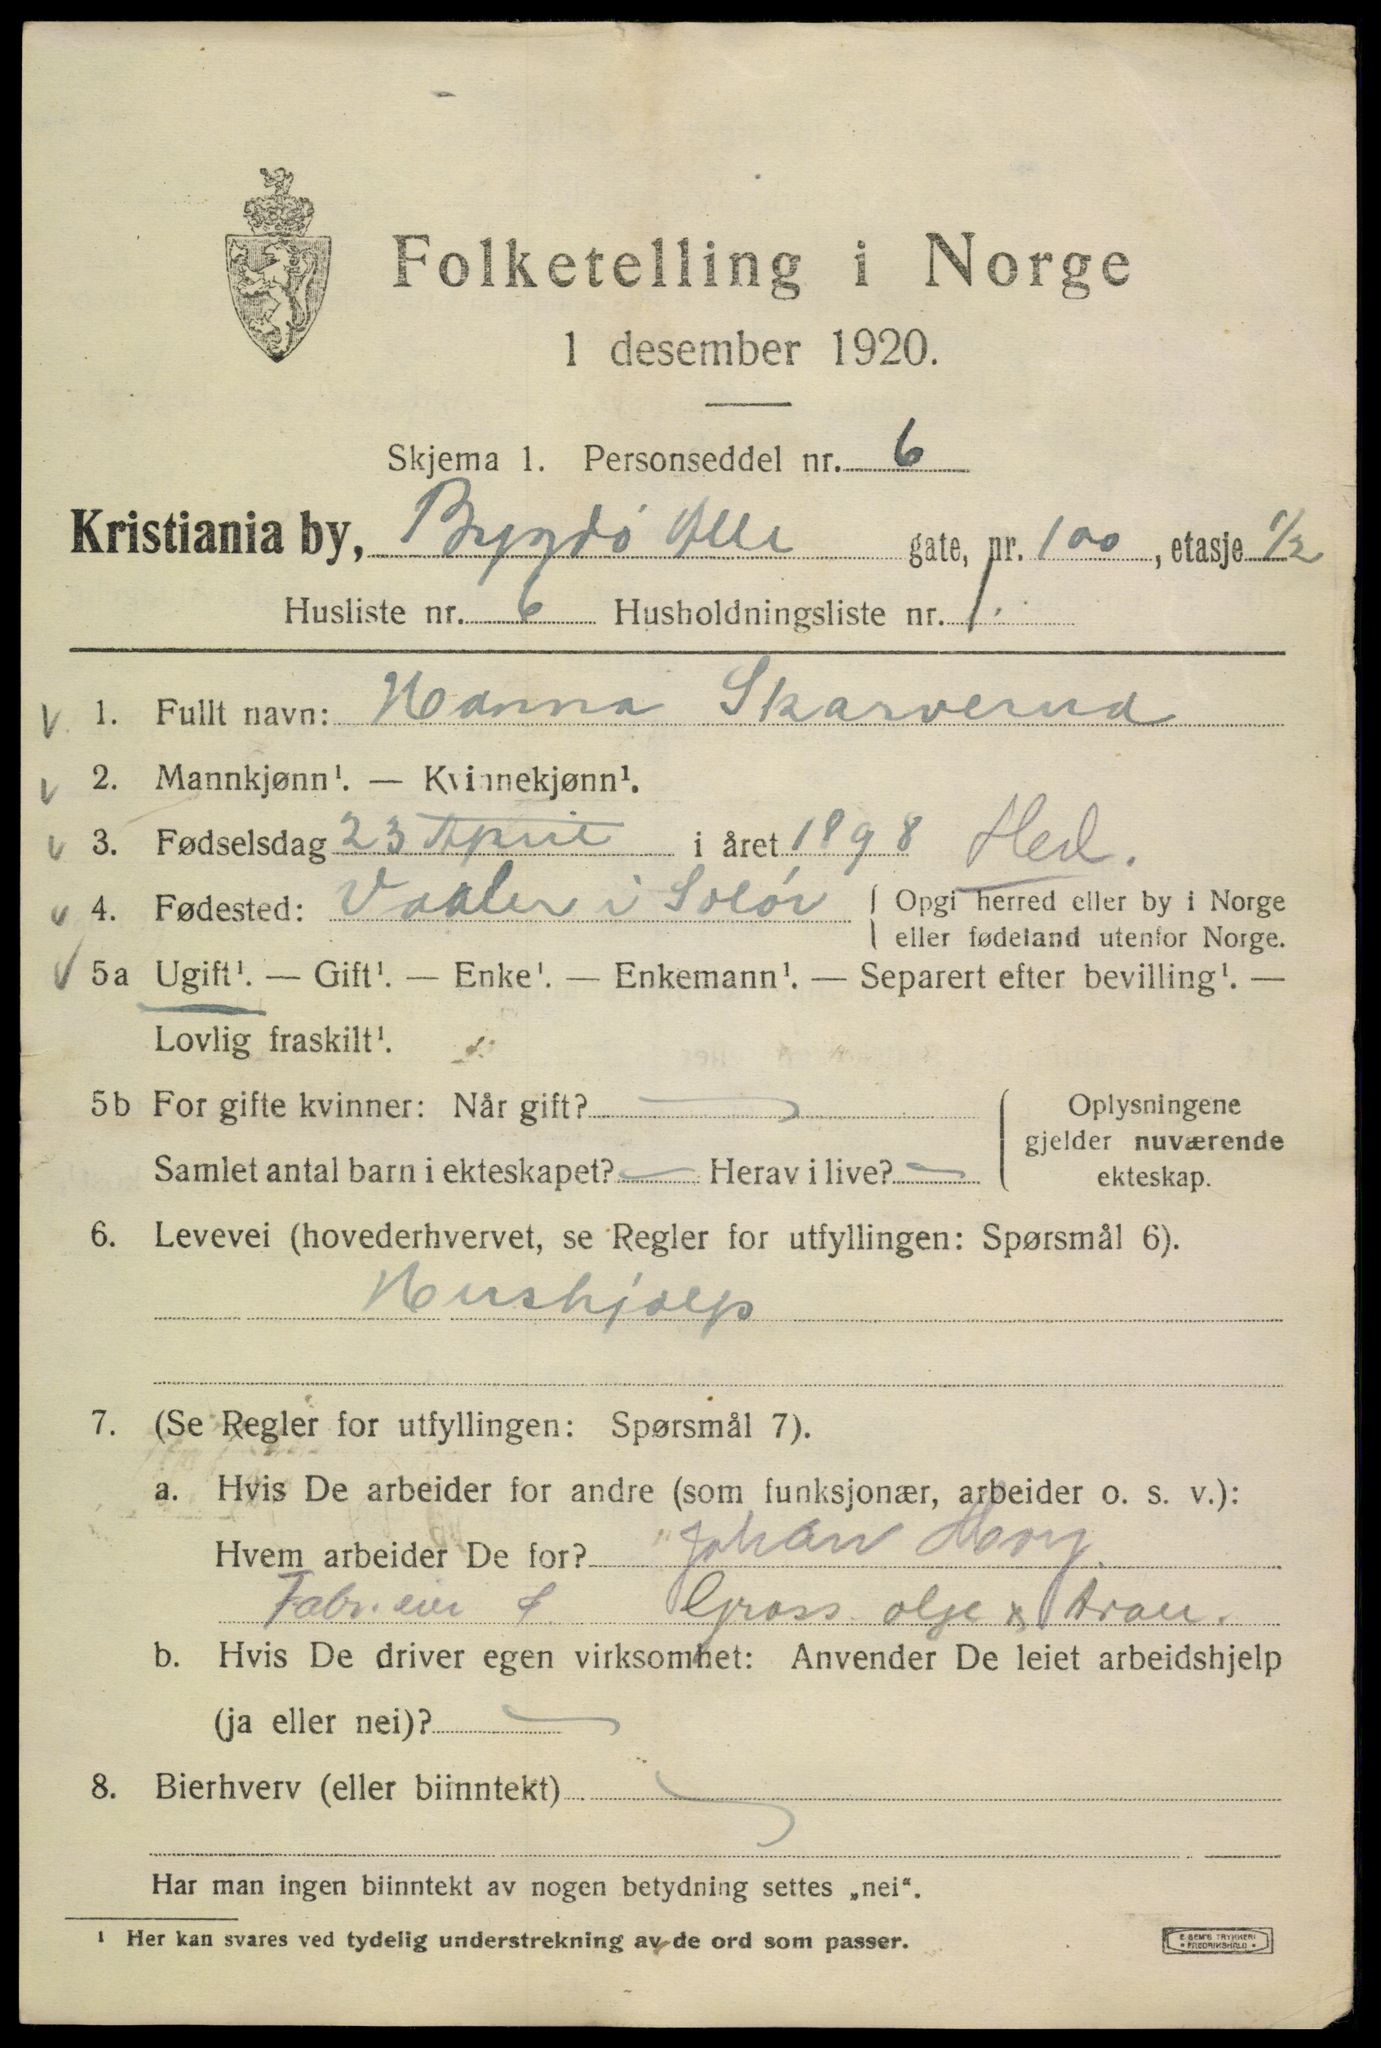 Folketelling i Norge
1 desember 1920.
Skjema 1. Personseddel nr. 6
Kristiania by, Bygdö Alle gate, nr. 100, etasje 1/2
Husliste nr. 6 Husholdningsliste nr. 1.
1. Fullt navn: Hanna Skarverud
2. Mannkjønn¹. — Kvinnekjønn¹.
3. Fødselsdag 23 April i året 1898 Hed.
4. Fødested: Vaaler i Solör { Opgi herred eller by i Norge
eller fødeland utenfor Norge.
5a Ugift¹. — Gift¹. — Enke¹. — Enkemann¹. — Separert efter bevilling¹. —
Lovlig fraskilt¹.
5b For gifte kvinner: Når gift?
Samlet antal barn i ekteskapet? Herav i live?
Oplysningene
gjelder nuværende
ekteskap.
6. Levevei (hovederhvervet, se Regler for utfyllingen: Spørsmål 6).
Hushjælp
7. (Se Regler for utfyllingen: Spørsmål 7).
a. Hvis De arbeider for andre (som funksjonær, arbeider o. s. v.):
Hvem arbeider De for? Johan
Gross. olje &
b. Hvis De driver egen virksomhet: Anvender De leiet arbeidshjelp
(ja eller nei)?
8. Bierhverv (eller biinntekt)
Har man ingen biinntekt av nogen betydning settes „nei“.
¹ Her kan svares ved tydelig understrekning av de ord som passer.
E. SEM'S TRYKKERI
• FREDRIKSHALD •